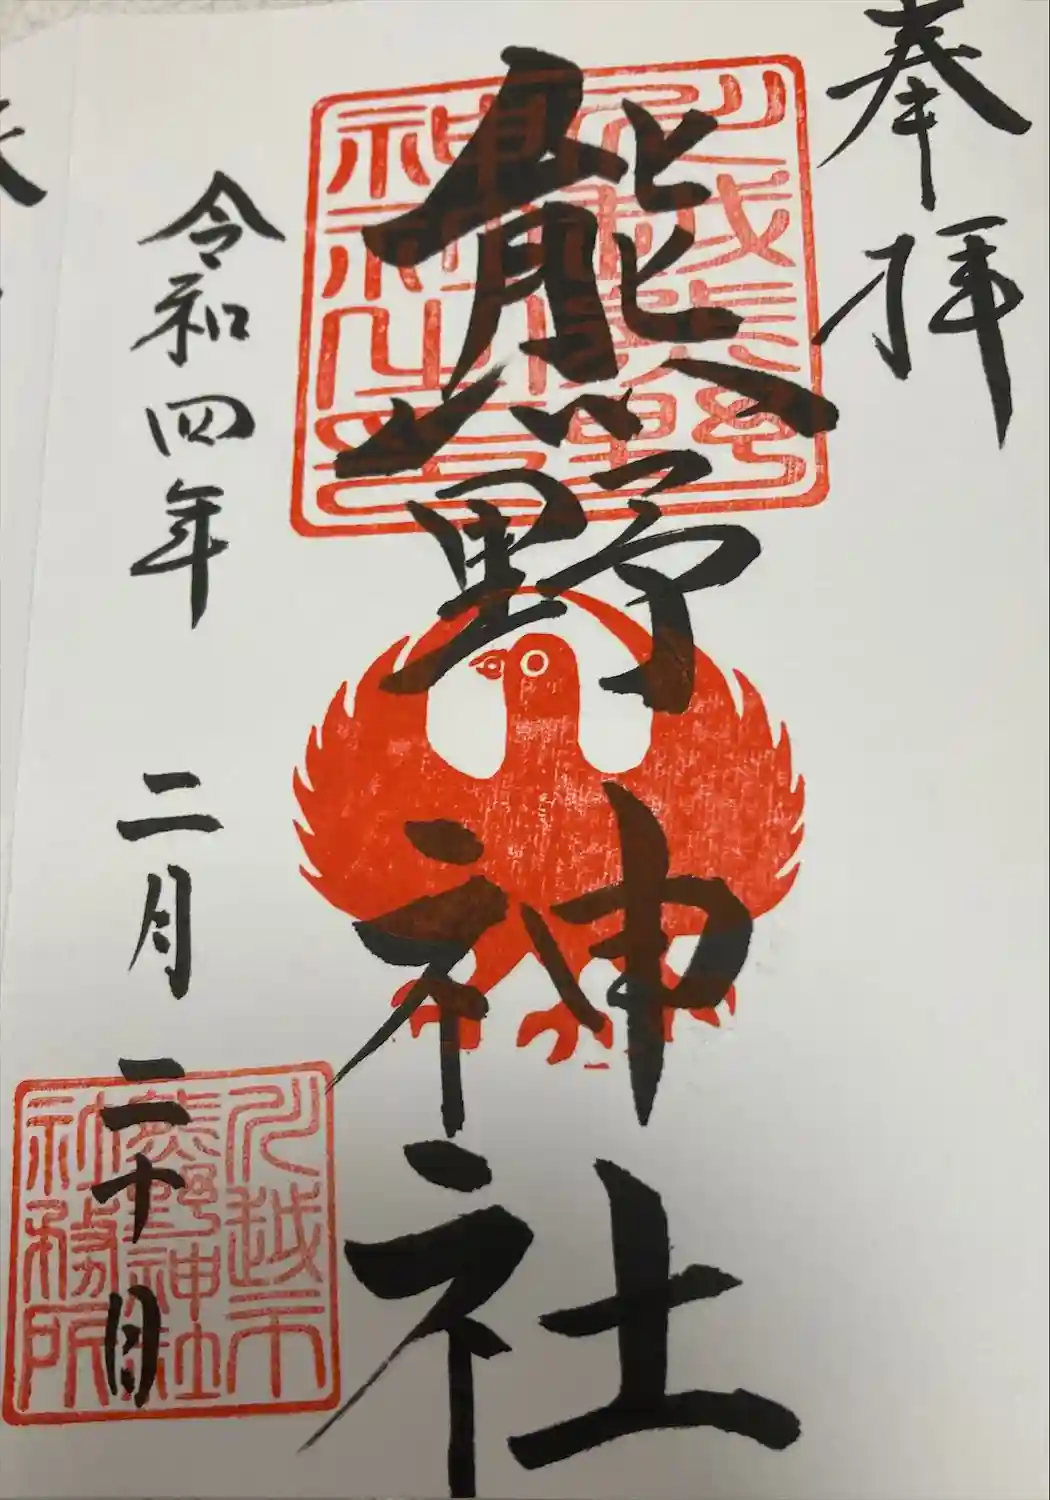 奉拝
熊野神社
川越熊野
神社之印
令和四年 二月二十日
川越市
熊野神社
社務所